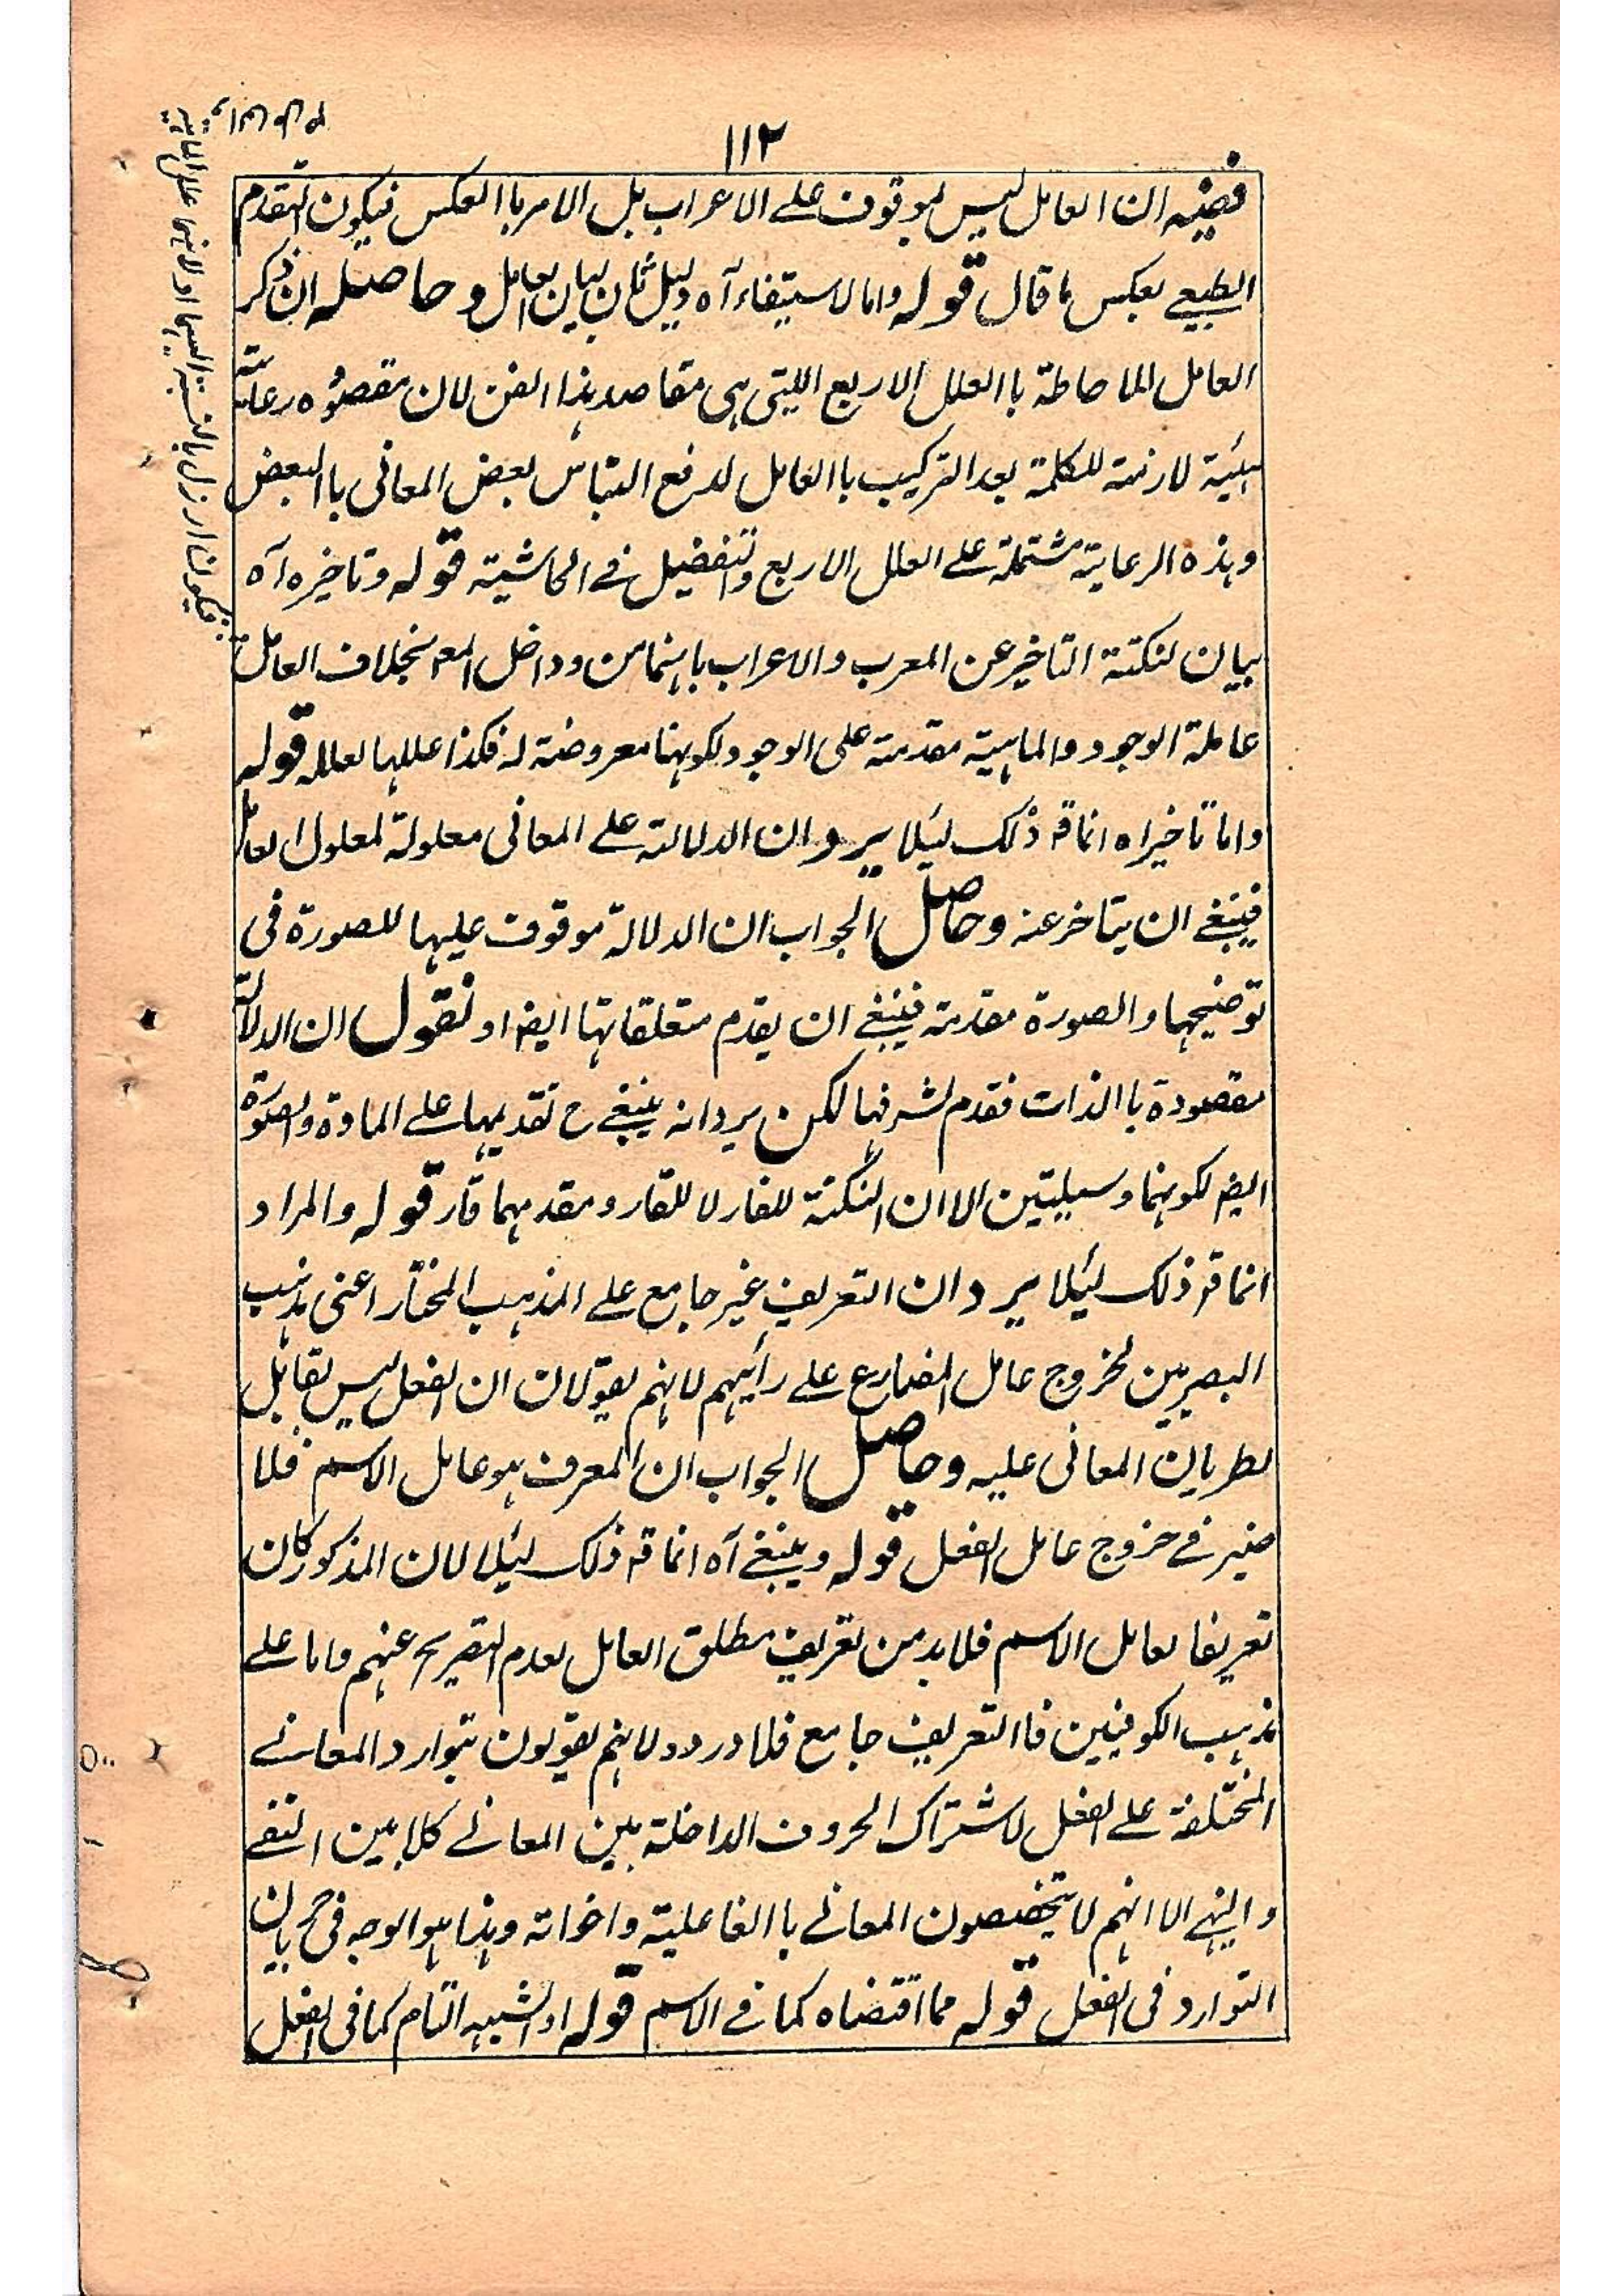 ١١٢
ففيه ان العامل ليس بموقوف علے الاعراب بل الامر باالعكس فيكون التقدم
الطبيعے بعكس ما قال قوله واما لاستيفاء آه دليل ثان لبيان العامل وحاصله ان ذكر
العامل للاحاطة باالعلل الاربع اللتى هى مقاصد هذا الفن لان مقصوده رعاية
هيئة لازمة للكلمة بعد التركيب باالعامل لدفع التباس بعض المعانى باالبعض
وهذه الرعاية مشتملة علے العلل الاربع والتفصيل فے الحاشية قوله وتاخيره آه
بيان لنكتة التاخير عن المعرب والاعراب بانهما من دواخل المع بخلاف العامل
عاملة الوجود والماهية مقدمة على الوجود لكونها معروضة له فكذا عللها لعلله قوله
واما تاخيراه انما قه ذلك لئيلا يرد ان الدلالته علے المعانى معلولة لمعلول العامل
فينبغے ان يتاخر عنه وحاصل الجواب ان الدلالة موقوف عليها للصورة فى
توضيحها والصورة مقدمته فينبغے ان يقدم متعلقاتها ايضه او نقول ان الدلالته
مقصودة باالذات فقدم لشرفها لكن يرد انه ينبغے ح تقديمها علے المادة والصورة
ايضه لكونهما وسيلتين الا ان النكتة للفار لا للقار ومقدمهما قار قوله والمراد
انما قه ذلك لئيلا يرد ان التعريف غير جامع علے المذهب المختار اعنى مذهب
البصريين لخروج عامل المضارع علے رأيهم لانهم يقولان ان الفعل ليس بقابل
لطريان المعانى عليه وحاصل الجواب ان المعرف هو عامل الاسم فلا
ضير فے خروج عامل الفعل قوله وينبغے آه انما قه ذلك لئيلا لان المذكور كان
تعريفا لعامل الاسم فلا بد من تعريف مطلق العامل لعدم التصريح عنهم واما علے
مذهب الكوفيين فاالتعريف جامع فلا درود لانهم يقولون بتوارد المعانے
المختلفة علے الفعل لاشتراك الحروف الداخلة بين المعانے كلا بين النفے
والنهے الا انهم لا يخصصون المعانے باالفاعلية واخواته وهذا هو الوجه فى جريان
التوارد فى الفعل قوله مما اقتضاه كما فے الاسم قوله او الشبه التام كما فى الفعل
فيكونان ازل بالنسبة اليها اولانها علل الماهية